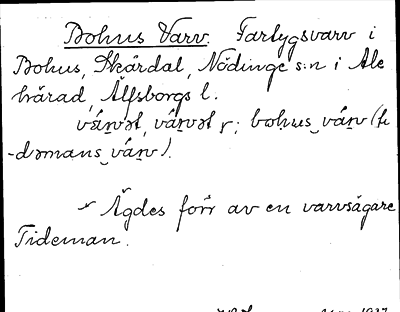 Bohus Varv. Fartygsvarv i
Bohus, Skårdal, Nödinge s:n i Ale
härad, Älfsborgs l.
vá̱rvət, vâ̱rvət r; bohus‿vá̱rv (ti
-dəmans‿vá̱rv).
Ägdes förr av en varvsägare
Tideman.